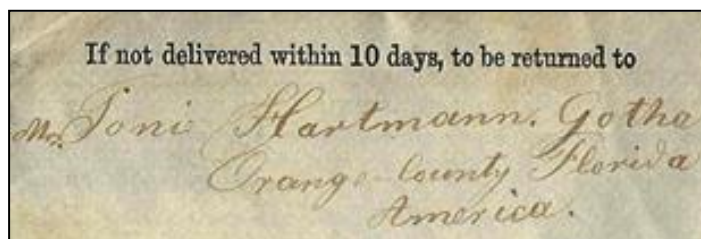 If not delivered within 10 days, to be returned to
Mr. Toni Hartmann. Gotha
Orange County Florida
America.